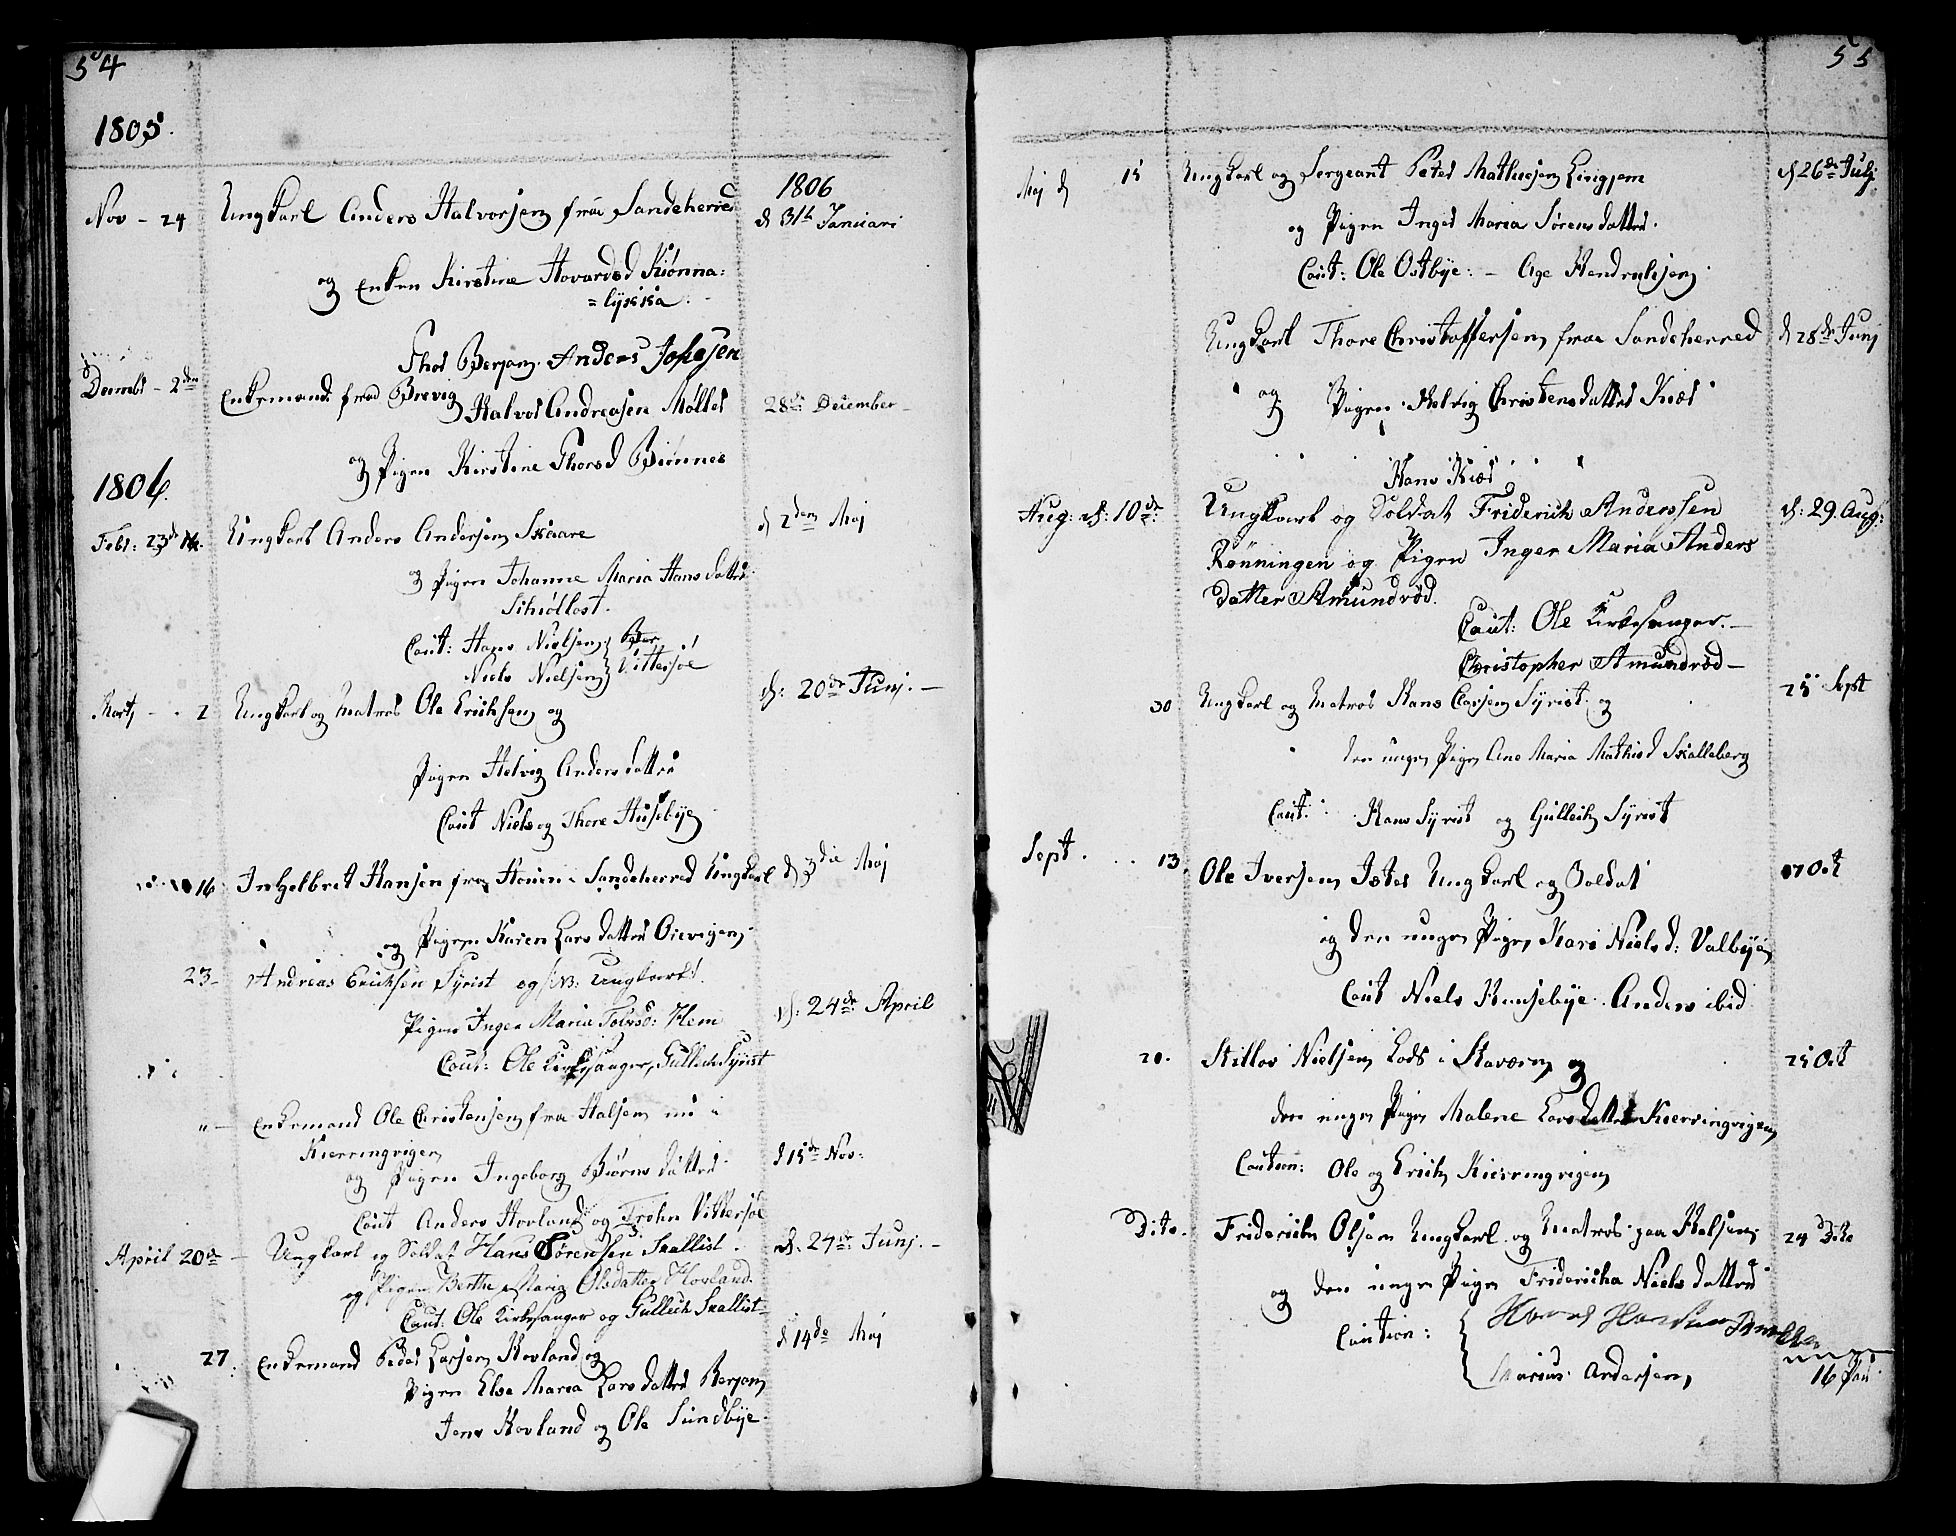 54
1805.
1806
Nov - 24 Ungkarl Anders Halvorsen fraa Sandeherred d 31th Januari
og Enken Kirstine Hovardsd Kiønna:
=lykka.
Thor Berjan. Anders Johsjen
Decembr - 2den Enkemand fraa Brevig Halvor Andreasen Møller 28de December
og Pigen Kirstine Thorsd Biønnes
1806.
Febr: 23de Ungkarl Anders Andersen Skaare d 2den Maj
og Pigen Johanne Maria Hansdatter
Schiøllost.
Caut: Hans Nielsen
Niels Nielsen Vittersøe
Martj - . 2 Ungkarl og Matros Ole Erichsen og d: 20de Junj. -
Pigen Helvig Andersdatter
Caut Niels og Thore Husebye
16 Ingelbret Hansen fra Hvim i Sandeherred Ungkarl d 3die Maj
og Pigen Karen Larsdatter Oievigen
23 - Andreas Ericksen Syrist og NB: Ungkarl.
Pigen Inger Maria Tolvsd: Hem d: 24de April
Caut: Ole Kirkesanger, Gullich Syrist
" - Enkemand Ole Christensen fra Halsen nu i
Kierringvigen
og Pigen Ingeborg Biørnsdatter d 15de Nov:
Caut Anders Hovland og Trøhn Vittersøe
April 20de - Ungkarl og Soldat Hans Sørensen Skallist. d. 24de Junj. -
og Pigen Berthe Maria Olsdatter Hovland.
Caut: Ole Kirkesanger og Gullich Skallist -
27. Enkemand Peder Larsen Hovland og d 14de Maj
Pigen Else Maria Larsdatter Berjan
Jens Hovland og Ole Sundbye.
55
Maj d 15 Ungkarl og Sergeant Peter Mathisen d 26de Julj.
og Pigen Inger Maria Sørensdatter.
Caut: Ole Ostbye: - Age Hendrichsen.
Ungkarl Thore Christoffersen fraa Sandeherred d 28de Junj
og Pigen Helvig Christensdatter Kiær
Hans Kiær
Aug: d: 10de: Ungkarl og Soldat Friderich Anderssen d: 29. Aug:
Rønningen og Pigen Inger Maria Anders
datter Amundrød.
Caut: Ole Kirkesanger. -
Christopher Amundrød -
30 Ungkarl og Matros Hans Larsen Syrist og 25 Sept
den unge Pige Ane Maria Mathisd Skalleberg
Caut: Hans Syrist og Gullich Syrist
Sept. . . 13. Ole Iversen Istre Ungkarl og Soldat 17 Oct
og den unge Pige Kari Nielsd: Valbye
Caut Niels Hunsebye. Anders ibid
20. Stillov Nielsen Lods i Staværn og 25 Oct
den unge Pige Malene Larsdatter Kierringvigen
Caution: Ole og Erich Kierringvigen
Dito. Friderich Olsen Ungkarl og Matros paa Halsen 24 Dito
og den unge Pige Fridericha Nielsdatter
Caution:
Marius Andersen
16